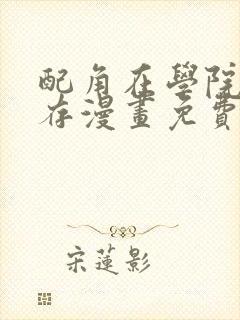 配角在學院
存漫畫免費
宋蓮影